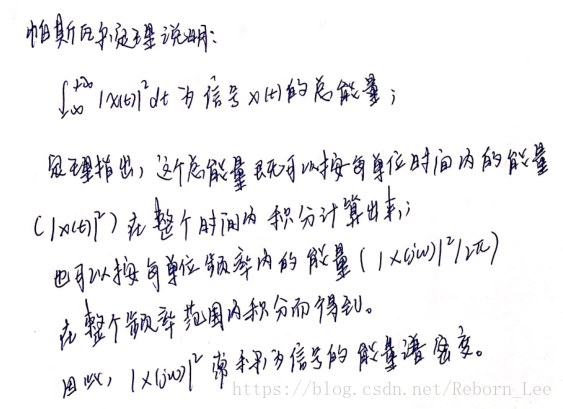 帕斯瓦尔定理说明:
∫_{-∞}^{+∞} |x(t)|² dt 为信号 x(t) 的总能量;
定理指出,这个总能量既可以按每单位时间内的能量
(|x(t)|²) 在整个时间内积分计算出来;
也可以按每单位频率内的能量(|X(jω)|²/2π)
在整个频率范围内积分而得到。
因此,|X(jω)|² 常称为信号的能量谱密度。
https://blog.csdn.net/Reborn_Lee